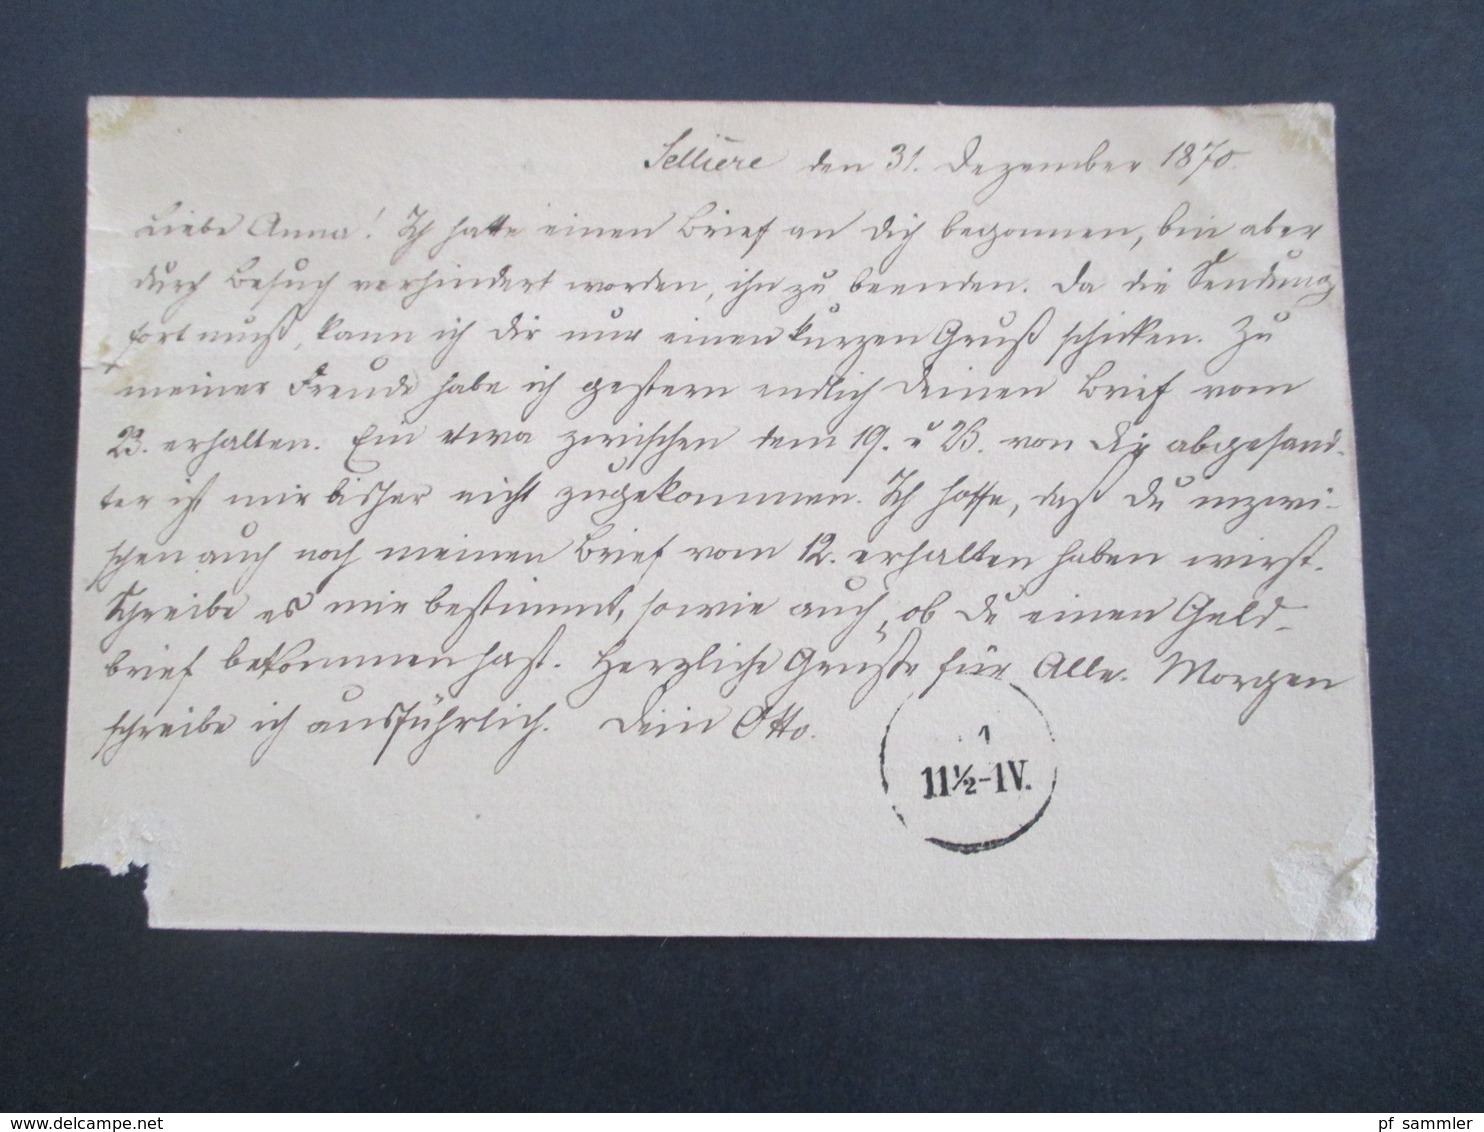 Sellière den 31. Dezember 1870.
Liebe Anna! Ich hatte einen Brief an Dich begonnen, bin aber
durch Besuch verhindert worden, ihn zu beenden. Da die Sendung
fort muß, kann ich Dir nur einen kurzen Gruß schicken. Zu
meiner Freude habe ich gestern endlich Deinen Brief vom
23. erhalten. Ein etwa zwischen dem 19. u 23. von Dir abgesand-
ter ist mir bisher nicht zugekommen. Ich hoffe, daß Du inzwi-
schen auch noch meinen Brief vom 12. erhalten haben wirst.
Schreibe es mir bestimmt, sowie auch, ob Du einen Geld-
brief bekommen hast. Herzliche Grüße für Alle. Morgen
schreibe ich ausführlich. Dein Otto.
1
11½-1V.
delcampe.net
pf_sammler